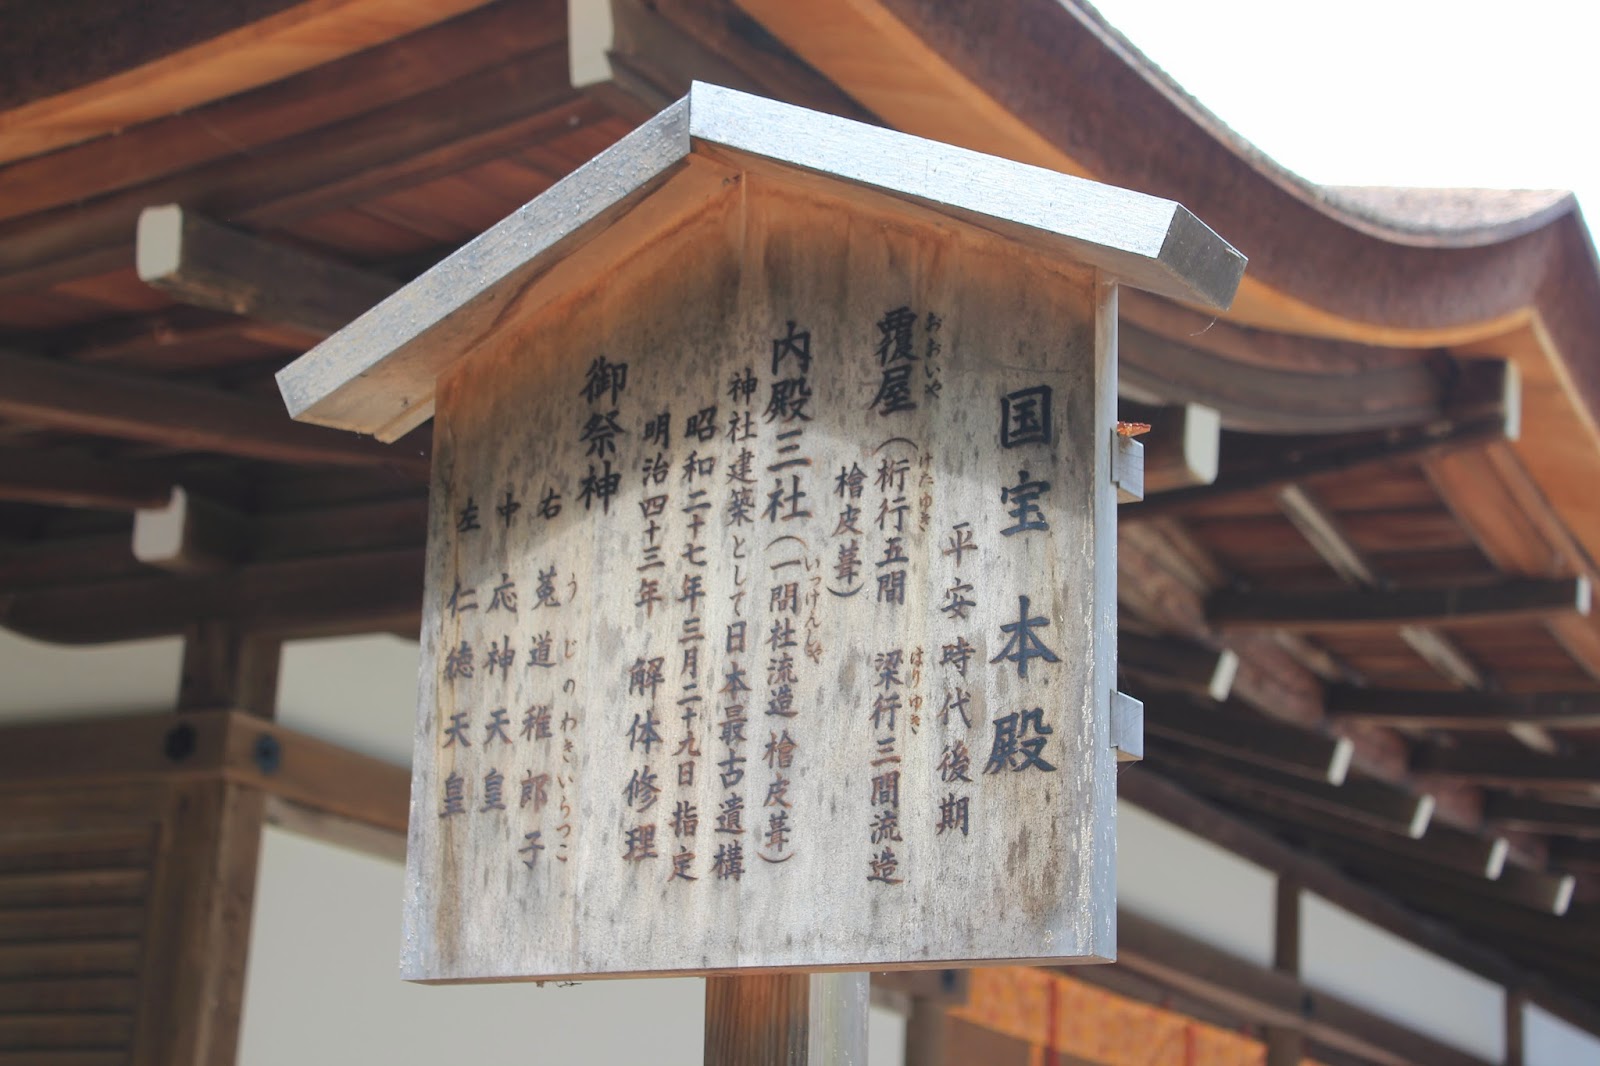 国宝 本殿
平安時代後期
覆屋（桁行五間 梁行三間流造
おおいや けたゆき はりゆき
檜皮葺）
内殿三社（一間社流造 檜皮葺）
いっけんしゃ
神社建築として日本最古遺構
昭和二十七年三月二十九日指定
明治四十三年 解体修理
御祭神
右 菟道稚郎子
うじのわきいらつこ
中 応神天皇
左 仁徳天皇